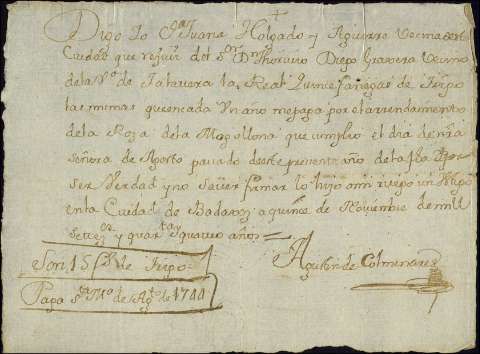 Digo Yo D.ª Juana Holgado y Aguirre Vecina de esta
Ciudad que reziui del S.or D.n Thoriuio Diego Gravera Vecino
de la V.ª de Talavera la Real Quince fanegas de Trigo
las mismas que en cada Un año me paga por el arrendamiento
de la Roza de la Mogollona que cumplio el dia de nrâ
señora de Agosto pasado de este presente año de la fha Y por
ser Verdad y no sauer firmar lo hizo a mi ruego un tësgo
en la Ciudad de Badaxoz a quince de Noviembre de mill
Setez.os y quar.ta y quatro años =
Agustin de Colmenares
Son 15 f.s de Trigo
Paga S.ta M.ª de Ag.to de 1744